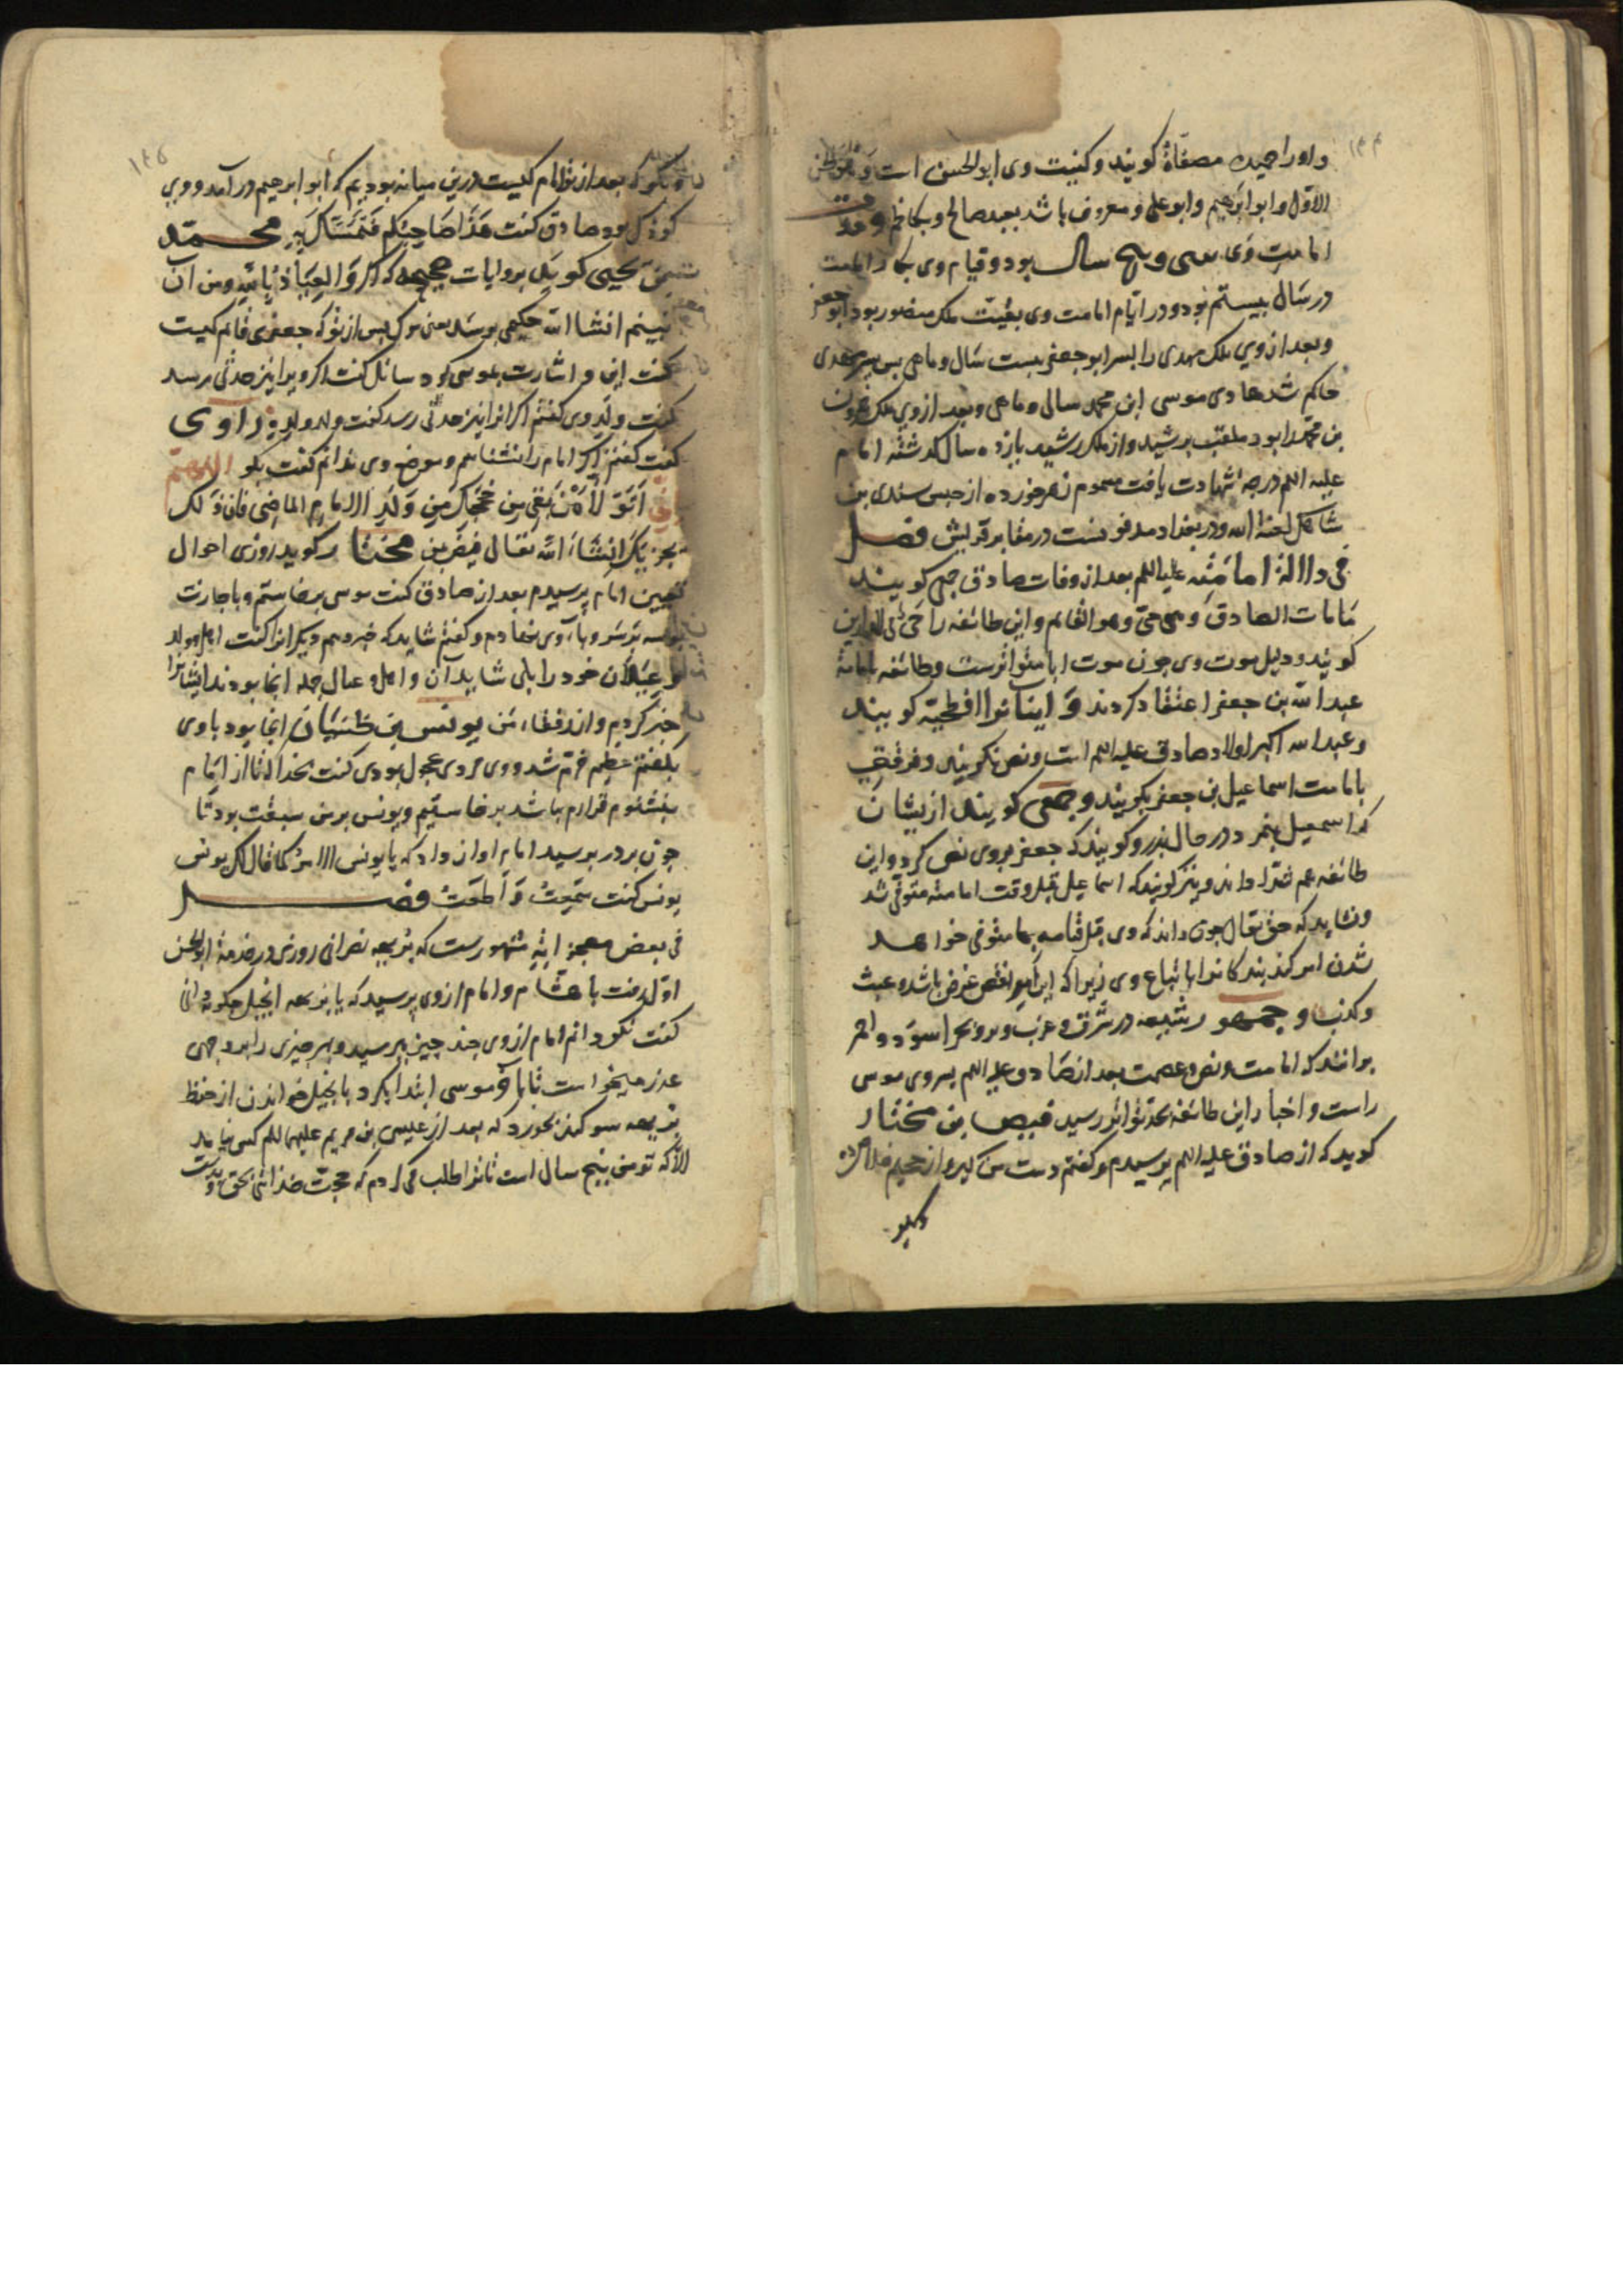 و او را حمیده مصفاة کویند و کنیت وی ابوالحسن است و
الاول و ابو ابراهیم و ابو علی و معروف باشد بعبد صالح و بکاظم و مدت
امامت وی سی و پنج سال بود و قیام وی بکار امامت
در سال بیستم بود و در ایام امامت وی بقیت ملک منصور بود ابو جعفر
و بعد از وی ملک مهدی را بسر ابو جعفر بیست سال و ماهی بس بسر مهدی
حاکم شد هادی موسی ابن محمد سالی و ماهی و بعد از وی ملک هرون
بن محمد را بود ملقب برشید و از ملک رشید بانزده سال کذشته امام
علیه السلم درجه شهادت یافت مسموم زهر خورده از حبس سندی بن
شاهک لعنه الله و در بغداد مدفونست در مقابر قریش فصل
فی دلالة امامته علیه السلم بعد از وفات صادق جمعی کویند
مامات الصادق و هو حی و هو القایم و این طائفه را
کویند و دلیل موت وی جون موت ابا متواترست و طائفه بامامة
عبدالله بن جعفر اعتقاد کردند و اینانرا افطحیه کویند
و عبدالله اکبر اولاد صادق علیه السلم است و نص نکویند و فرقتی
بامامت اسماعیل بن جعفر بکویند و جمعی کویند از یشان
که اسمعیل بنمرد در حال بدر و کویند که جعفر بروی نص کرد و این
طائفه عم خدا داند و نیز کویند که اسماعیل قبل وقت امامته متوفی شد
و نشاید که حق تعالی جون داند که وی قبل قیامه بامامت متوفی خواهد
شدن امر کند بندکانرا باتباع وی زیرا که این امر نقض غرض باشد و عبث
و کذب و جمهور شیعه در شرق و غرب و بر و بحر اسود و احمر
بر انند که امامت و نص و عصمت بعد از صادق علیه السلم بسر وی موسی
راست و اخبار این طائفه بحد تواتر رسید فیض بن مختار
کوید که از صادق علیه السلم پرسیدم و کفتم دست من کیر و از جحیم خلاص ده
و بکو که بعد از تو امام کیست درین میانه بودیم که ابو ابرهیم در آمد و وی
کوذکی بود صادق کفت هذا صاحبکم فتمسک به محمد
بن یحیی کوید بروایات صحیحه که اکر والعیاذ بالله و من ان
نبینم انشا الله حکمی برسد یعنی مرک بس از تو که جعفری قائم کیست
کفت این و اشارت بموسی کرد سائل کفت اکر ویرا نیز حدثی رسد
کفت ولد وی کفتم اکر انرا نیز حدثی رسد کفت ولد ولده راوی
کفت کفتم اکر امام را نشناسم و موضع وی ندانم کفت بکو اللهم
انی اتولی لمن بقی من حججک من ولد الامام الماضی فان ذلک
یجزیک انشاء الله تعالی فیض بن مختار کوید روزی احوال
تعیین امام پرسیدم بعد از صادق کفت موسی برخاستم و باجازت
بوسه بر سر و پای وی نهادم و کفتم شاید که خبر دهم دیکرانرا کفت اهل و ولد
و عیلان خود را بلی شاید آن و اهل و عیال جمله انجا بودند ایشانرا
خبر کردیم و از رفقاء من یونس بن ظبیان انجا بود با وی
بکفتم عظیم خرم شد و وی مردی عجول بودی کفت بخدا که تا از امام
بنشنوم قرارم نباشد برخاستیم و یونس بر من سبقت بود تا
جون بر در برسید امام اواز داد که یا یونس الامر کما قال لک یونس
یونس کفت سمعت و اطعت فصل
فی بعض معجزاته مشهورست که بریهه نصرانی روزی در خدمة ابوالحسن
اول رفت با هشام و امام از وی پرسید که یا بریهه انجیل جکونه دانی
کفت نکو دانم امام از وی جند جیز بپرسید و بهر جیزی را بروجهی
عذر میخواست تا باقر موسی ابتدا بکرد بانجیل خواندن از حفظ
بریهه سوکند بخورد که بعد از عیسی بن مریم علیهما السلم کسی نیامد
الا که تو من پنج سال است تا ترا طلب می کردم که حجت خدائی بحق